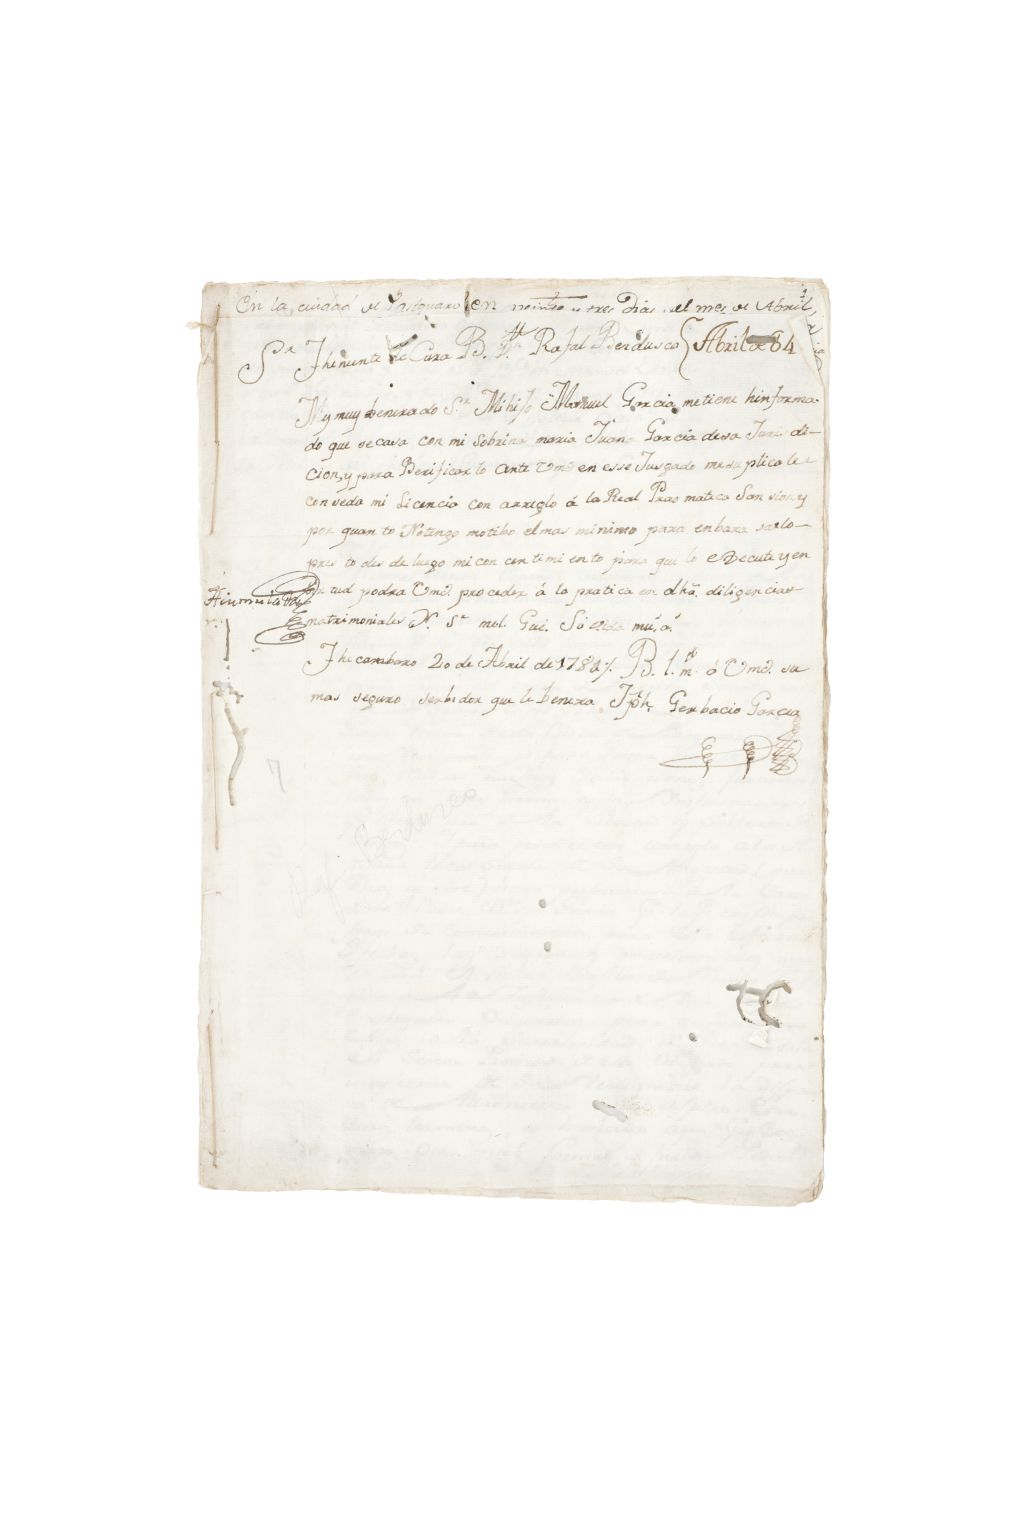 En la ciudad de Pasquaro en veinte y tres Dias del mes de Abril
Sor. Thiniente de Cura B. Dn. Rafal Berdusco Abril de 84
My muy benerado Sr. Mi hijo Manuel Garcia me tiene hinforma-
do que se casa con mi Sobrina maria Juana Garcia desa Juris di-
cion, y para Berificarlo ante Vmd en esse Jusgado me suplica le
conseda mi Licencia con arreglo á la Real Pracmatica San sion y
por quanto No tengo motibo el mas minimo para enbara sarlo
pres to des de luego mi con centimi en to para que lo eBecute y en
bir tud podra Vmd. proceder á la pratica en dha. diligencias
matrimoniales N. Sr. mol. Gue. Su vida ms. as.
Thecambaro 20 de Abril de 1784. B. l. m. á Vmd. su
mas seguro serbidor que le benera Jph. Gerbacio Garcia
7
Berdusco